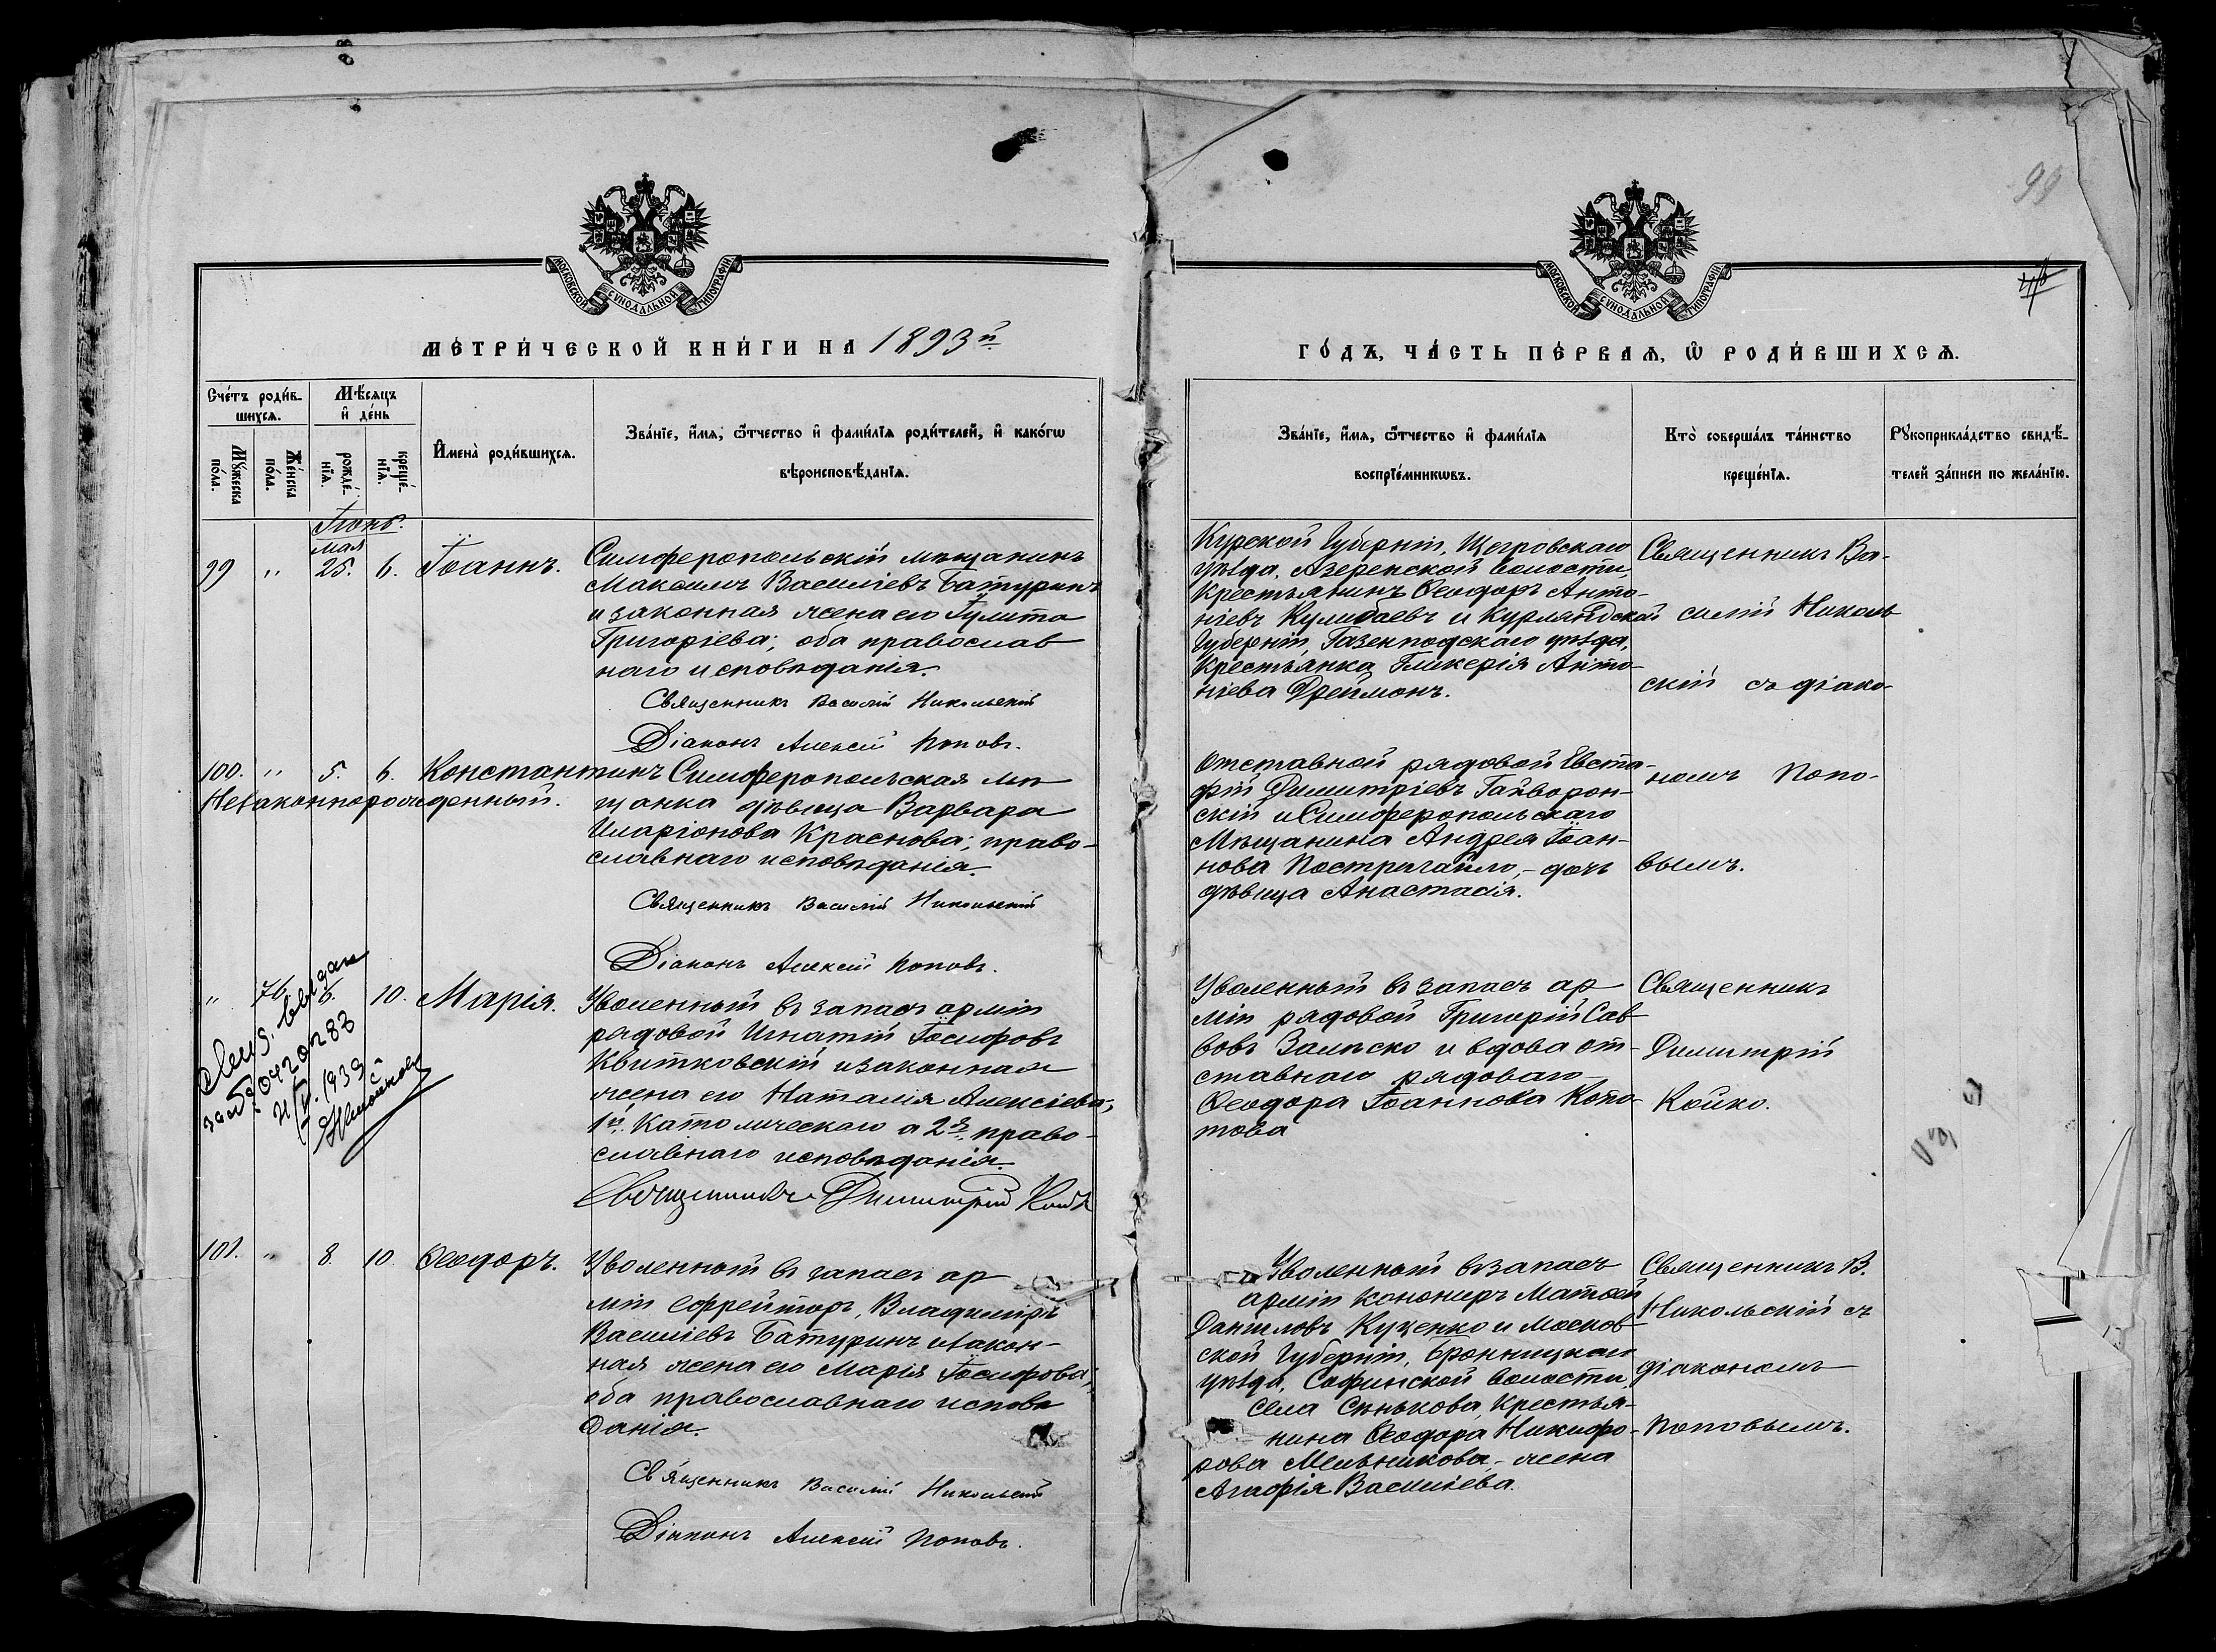 99
МОСКОВСКОЙ СѴНОДАЛЬНОЙ ТИПОГРАФІИ
МОСКОВСКОЙ СѴНОДАЛЬНОЙ ТИПОГРАФІИ
МЕТРИЧЕСКОЙ КНИГИ НА 1893й
ГОДЪ, ЧАСТЬ ПЕРВАЯ, Ѡ РОДИВШИХСЯ.
Счетъ родив-
шихся.
Мужеска
пола.
Женска
пола.
Мѣсяцъ
и день
рожде-
нія.
креще-
нія.
Имена родившихся.
Званіе, имя, ѿчество и фамилія родителей, и какогѡ
вѣроисповѣданія.
Званіе, имя, ѿчество и фамилія
воспріемникѡвъ.
Кто совершалъ таинство
крещенія.
Рукоприкладство свидѣ-
телей записи по желанію.
Іюнь.
мая
99 " 25. 6. Іоаннъ.
Симферопольскій мѣщанинъ
Максимъ Василіевъ Батуринъ
и законная жена его Іулита
Григоріева; оба православ
наго исповѣданія.
Священникъ Василій Никольскій
Діаконъ Алексій Поповъ.
Курской Губерніи, Щигровскаго
уѣзда, Азеренской волости,
Крестьянинъ Ѳеодоръ Анто-
ніевъ Кулибаевъ и Курляндской
Губерніи, Газенподскаго уѣзда,
Крестьянка Гликерія Анто-
ніева Дрейманъ.
Священникъ Ва-
силій Николь
скій съ діако-
номъ Попо-
вымъ.
100. " 5. 6. Константинъ
Незаконнорожденный.
Симферопольская мѣ
щанка дѣвица Варвара
Иларіонова Краснова; право-
славнаго исповѣданія.
Священникъ Василій Никольскій
Діаконъ Алексій Поповъ.
Отставной рядовой Евста-
фій Димитріевъ Гайворон-
скій и Симферопольскаго
Мѣщанина Андрея Іоан-
нова Постригайло,- дочь
дѣвица Анастасія.
" 76 5. 10. Марія.
выдан
1939
Уволенный въ запасъ арміи
рядовой Игнатій Іосифовъ
Квитковскій и законная
жена его Наталія Алексіева,
1й Католическаго а 2я право-
славнаго исповѣданія.
Священникъ Димитрій Койко
Уволенный въ запасъ ар
міи рядовой Григорій Сав
вовъ Залѣско и вдова от-
ставнаго рядоваго
Ѳеодора Іоаннова Копо-
това
Священникъ
Димитрій
Койко.
101. " 8. 10. Ѳеодоръ.
Уволенный въ запасъ ар
міи ефрейторъ, Владиміръ
Василіевъ Батуринъ и закон-
ная жена его Марія Іосифова,
оба православнаго исповѣ
данія.
Священникъ Василій Никольскій
Діаконъ Алексій Поповъ.
Уволенный въ запасъ
арміи канониръ Матѳей
Даніиловъ Куценко и Москов
ской Губерніи, Бронницкаго
уѣзда, Софинской волости,
села Сѣнькова, Крестья-
нина Ѳеодора Никифо-
рова Мельникова,- жена
Агафія Василіева.
Священникъ В.
Никольскій съ
діакономъ
Поповымъ.